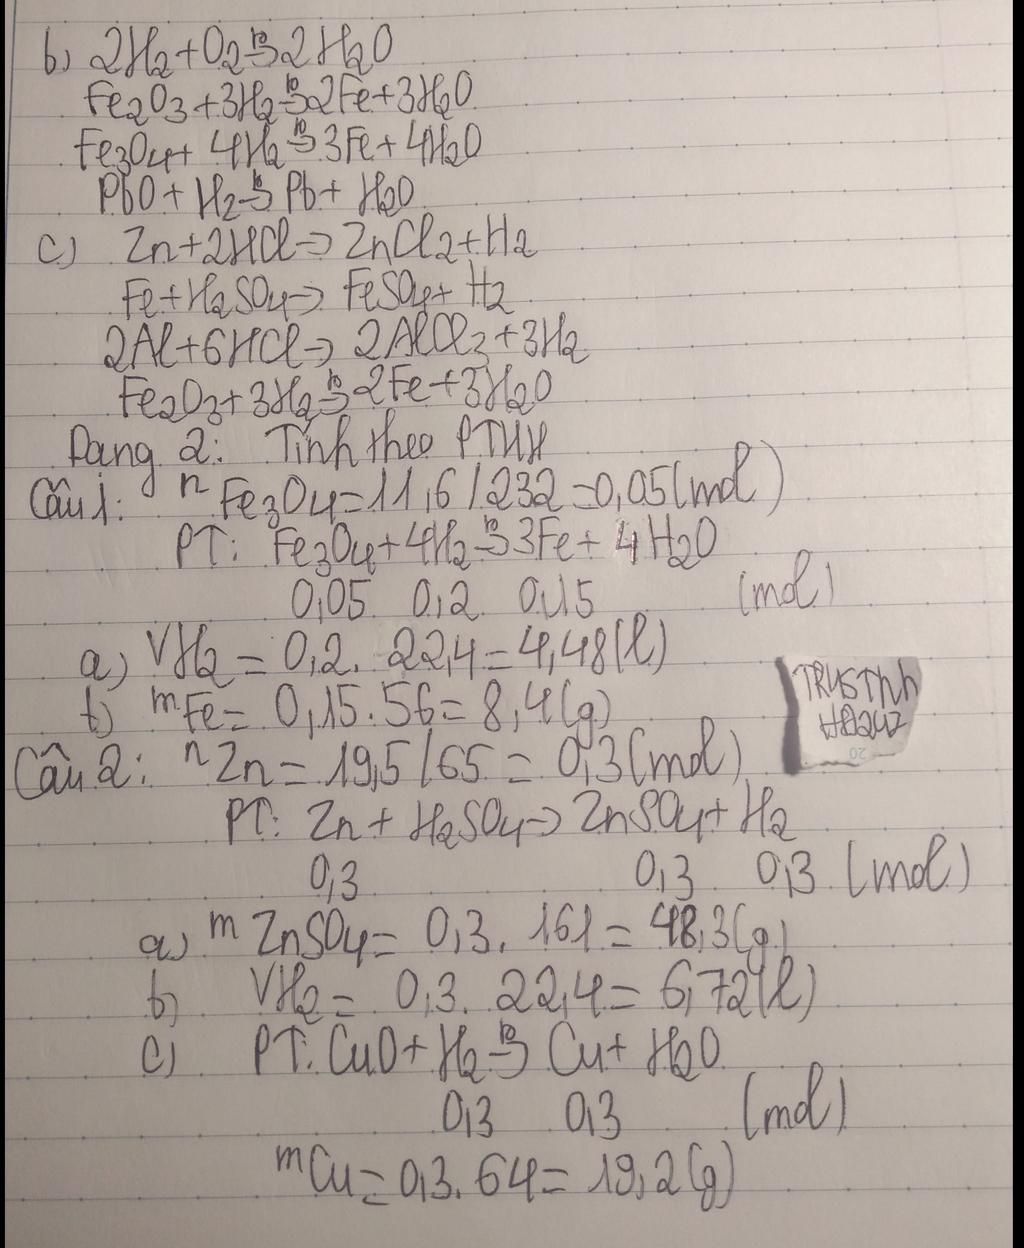 b) 2H2+O2 t°→ 2H2O
Fe2O3+3H2 t°→ 2Fe+3H2O
Fe3O4+ 4H2 t°→ 3Fe+ 4H2O
PbO+ H2 t°→ Pb+ H2O
c) Zn+2HCl→ ZnCl2+H2
Fe+H2SO4→ FeSO4+ H2
2Al+6HCl→ 2AlCl3+3H2
Fe2O3+3H2 t°→ 2Fe+3H2O
Dạng 2: Tính theo PTHH
Câu 1: nFe3O4=11,6/232=0,05(mol)
PT: Fe3O4+4H2 t°→ 3Fe+ 4H2O
0,05 0,2 0,15 (mol)
a) VH2= 0,2. 22,4=4,48(l)
b) mFe= 0,15.56= 8,4(g)
TRUSTnh
Câu 2: nZn= 19,5/65 = 0,3(mol)
PT: Zn+ H2SO4→ ZnSO4+ H2
0,3 0,3 0,3 (mol)
a) m ZnSO4= 0,3. 161= 48,3(g)
b) VH2= 0,3. 22,4= 6,72(l)
c) PT: CuO+ H2 t°→ Cu+ H2O
0,3 0,3 (mol)
mCu=0,3.64= 19,2(g)